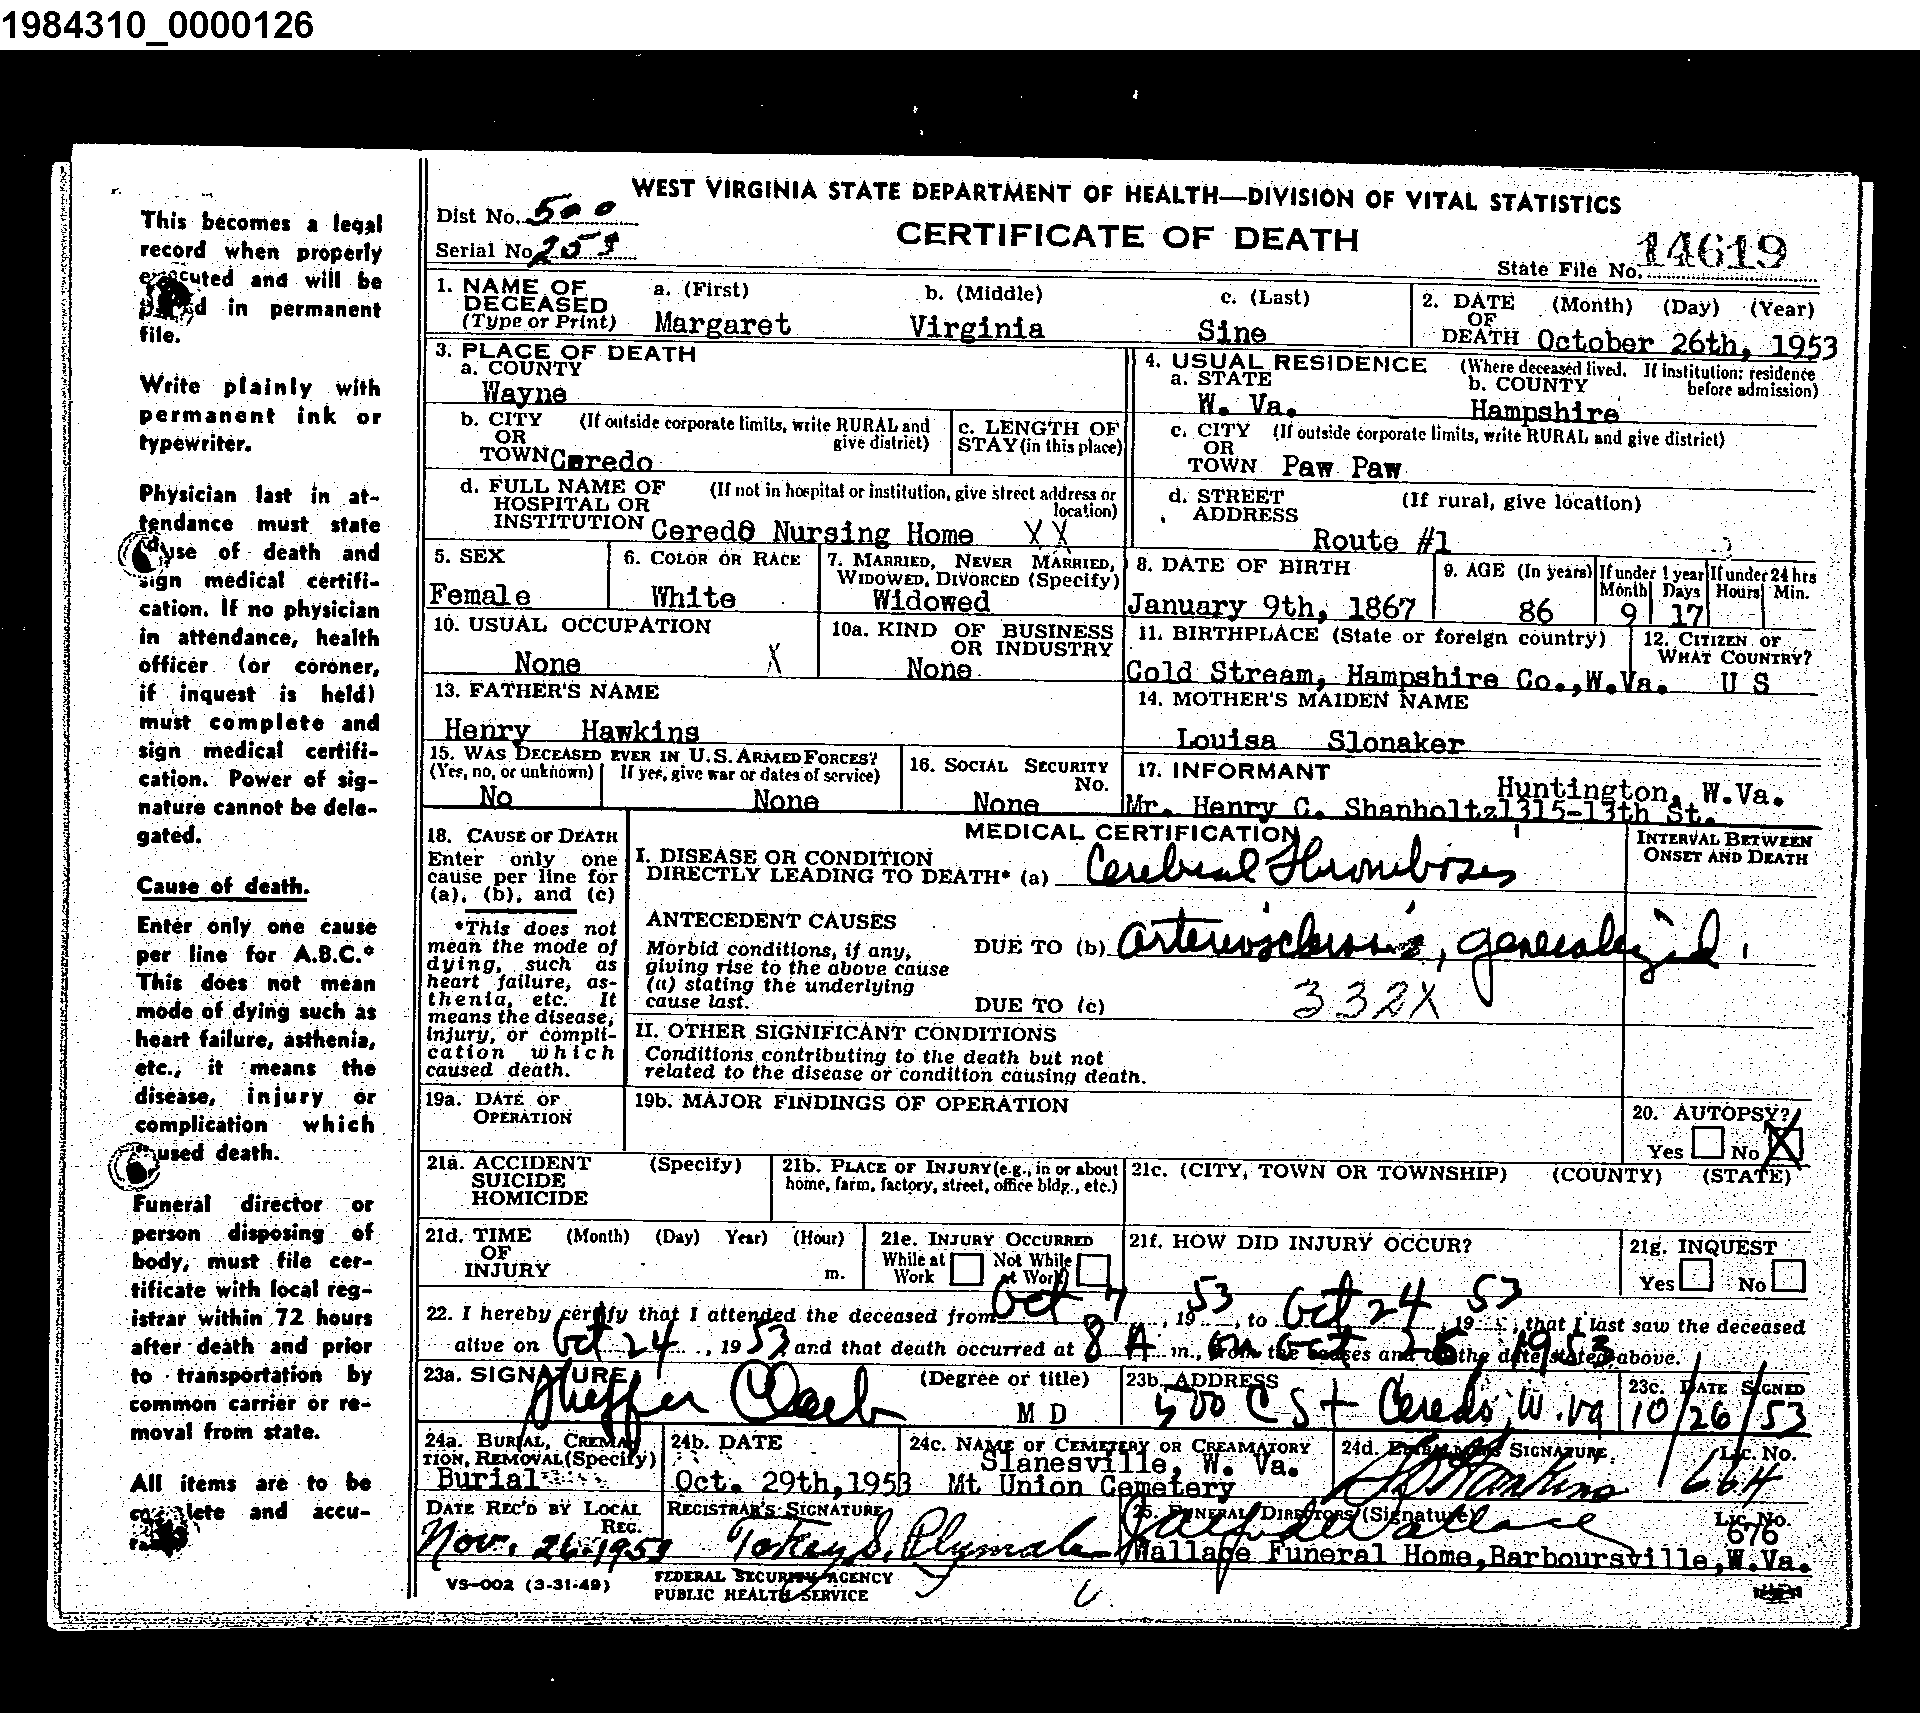 1984310_0000126
This becomes a legal
record when properly
executed and will be
placed in permanent
file.
Write plainly with
permanent ink or
typewriter.
Physician last in at-
tendance must state
cause of death and
sign medical certifi-
cation. If no physician
in attendance, health
officer (or coroner,
if inquest is held)
must complete and
sign medical certifi-
cation. Power of sig-
nature cannot be dele-
gated.
Cause of death.
Enter only one cause
per line for A.B.C.*
This does not mean
mode of dying such as
heart failure, asthenia,
etc., it means the
disease, injury or
complication which
caused death.
Funeral director or
person disposing of
body, must file cer-
tificate with local reg-
istrar within 72 hours
after death and prior
to transportation by
common carrier or re-
moval from state.
All items are to be
complete and accu-
WEST VIRGINIA STATE DEPARTMENT OF HEALTH—DIVISION OF VITAL STATISTICS
Dist No. 500
CERTIFICATE OF DEATH
Serial No. 253
State File No. 14619
1. NAME OF DECEASED (Type or Print) a. (First) b. (Middle) c. (Last)
Margaret Virginia Sine
2. DATE OF DEATH (Month) (Day) (Year)
October 26th, 1953
3. PLACE OF DEATH
a. COUNTY
Wayne
4. USUAL RESIDENCE (Where deceased lived. If institution: residence before admission)
a. STATE b. COUNTY
W. Va. Hampshire
b. CITY OR TOWN (If outside corporate limits, write RURAL and give district)
Ceredo
c. LENGTH OF STAY (in this place)
c. CITY OR TOWN (If outside corporate limits, write RURAL and give district)
Paw Paw
d. FULL NAME OF HOSPITAL OR INSTITUTION (If not in hospital or institution, give street address or location)
Ceredo Nursing Home XX
d. STREET ADDRESS (If rural, give location)
Route #1
5. SEX
Female
6. COLOR OR RACE
White
7. MARRIED, NEVER MARRIED, WIDOWED, DIVORCED (Specify)
Widowed
8. DATE OF BIRTH
January 9th, 1867
9. AGE (In years) If under 1 year Month Days If under 24 hrs Hours Min.
86 9 17
10. USUAL OCCUPATION
None X
10a. KIND OF BUSINESS OR INDUSTRY
None
11. BIRTHPLACE (State or foreign country)
Cold Stream, Hampshire Co.,W.Va.
12. CITIZEN OF WHAT COUNTRY?
U S
13. FATHER'S NAME
Henry Hawkins
14. MOTHER'S MAIDEN NAME
Louisa Slonaker
15. WAS DECEASED EVER IN U.S. ARMED FORCES?
(Yes, no, or unknown) If yes, give war or dates of service)
No None
16. SOCIAL SECURITY No.
None
17. INFORMANT Huntington, W.Va.
Mr. Henry C. Shanholtz1315-13th St.
MEDICAL CERTIFICATION
18. CAUSE OF DEATH
Enter only one
cause per line for
(a), (b), and (c)
*This does not
mean the mode of
dying, such as
heart failure, as-
thenia, etc. It
means the disease,
injury, or compli-
cation which
caused death.
I. DISEASE OR CONDITION
DIRECTLY LEADING TO DEATH* (a) Cerebral Thrombosis
INTERVAL BETWEEN ONSET AND DEATH
ANTECEDENT CAUSES
Morbid conditions, if any,
giving rise to the above cause
(a) stating the underlying
cause last.
DUE TO (b) Arteriosclerosis, generalized
DUE TO (c) 332X
II. OTHER SIGNIFICANT CONDITIONS
Conditions contributing to the death but not
related to the disease or condition causing death.
19a. DATE OF OPERATION
19b. MAJOR FINDINGS OF OPERATION
20. AUTOPSY?
Yes No X
21a. ACCIDENT SUICIDE HOMICIDE (Specify)
21b. PLACE OF INJURY (e.g., in or about home, farm, factory, street, office bldg., etc.)
21c. (CITY, TOWN OR TOWNSHIP) (COUNTY) (STATE)
21d. TIME OF INJURY (Month) (Day) Year) (Hour) m.
21e. INJURY OCCURRED
While at Work Not While at Work
21f. HOW DID INJURY OCCUR?
21g. INQUEST
Yes No
22. I hereby certify that I attended the deceased from Oct 7, 1953, to Oct 24 1953, that I last saw the deceased
alive on Oct 24, 1953 and that death occurred at 8 A m., from the causes and on the date stated above. on Oct 26 1953
23a. SIGNATURE (Degree or title)
M D
23b. ADDRESS
500 C St Ceredo, W. Va
23c. DATE SIGNED
10/26/53
24a. BURIAL, CREMATION, REMOVAL (Specify)
Burial
24b. DATE
Oct. 29th,1953
24c. NAME OF CEMETERY OR CREAMATORY
Slanesville, W. Va.
Mt Union Cemetery
24d. EMBALMER'S SIGNATURE. Lic. No.
664
DATE REC'D BY LOCAL REG.
Nov. 26-1953
REGISTRAR'S SIGNATURE
25. FUNERAL DIRECTORS (Signature) Lic. No.
Wallace 676
Wallace Funeral Home,Barboursville,W.Va.
VS-002 (3-31-49)
FEDERAL SECURITY AGENCY
PUBLIC HEALTH SERVICE